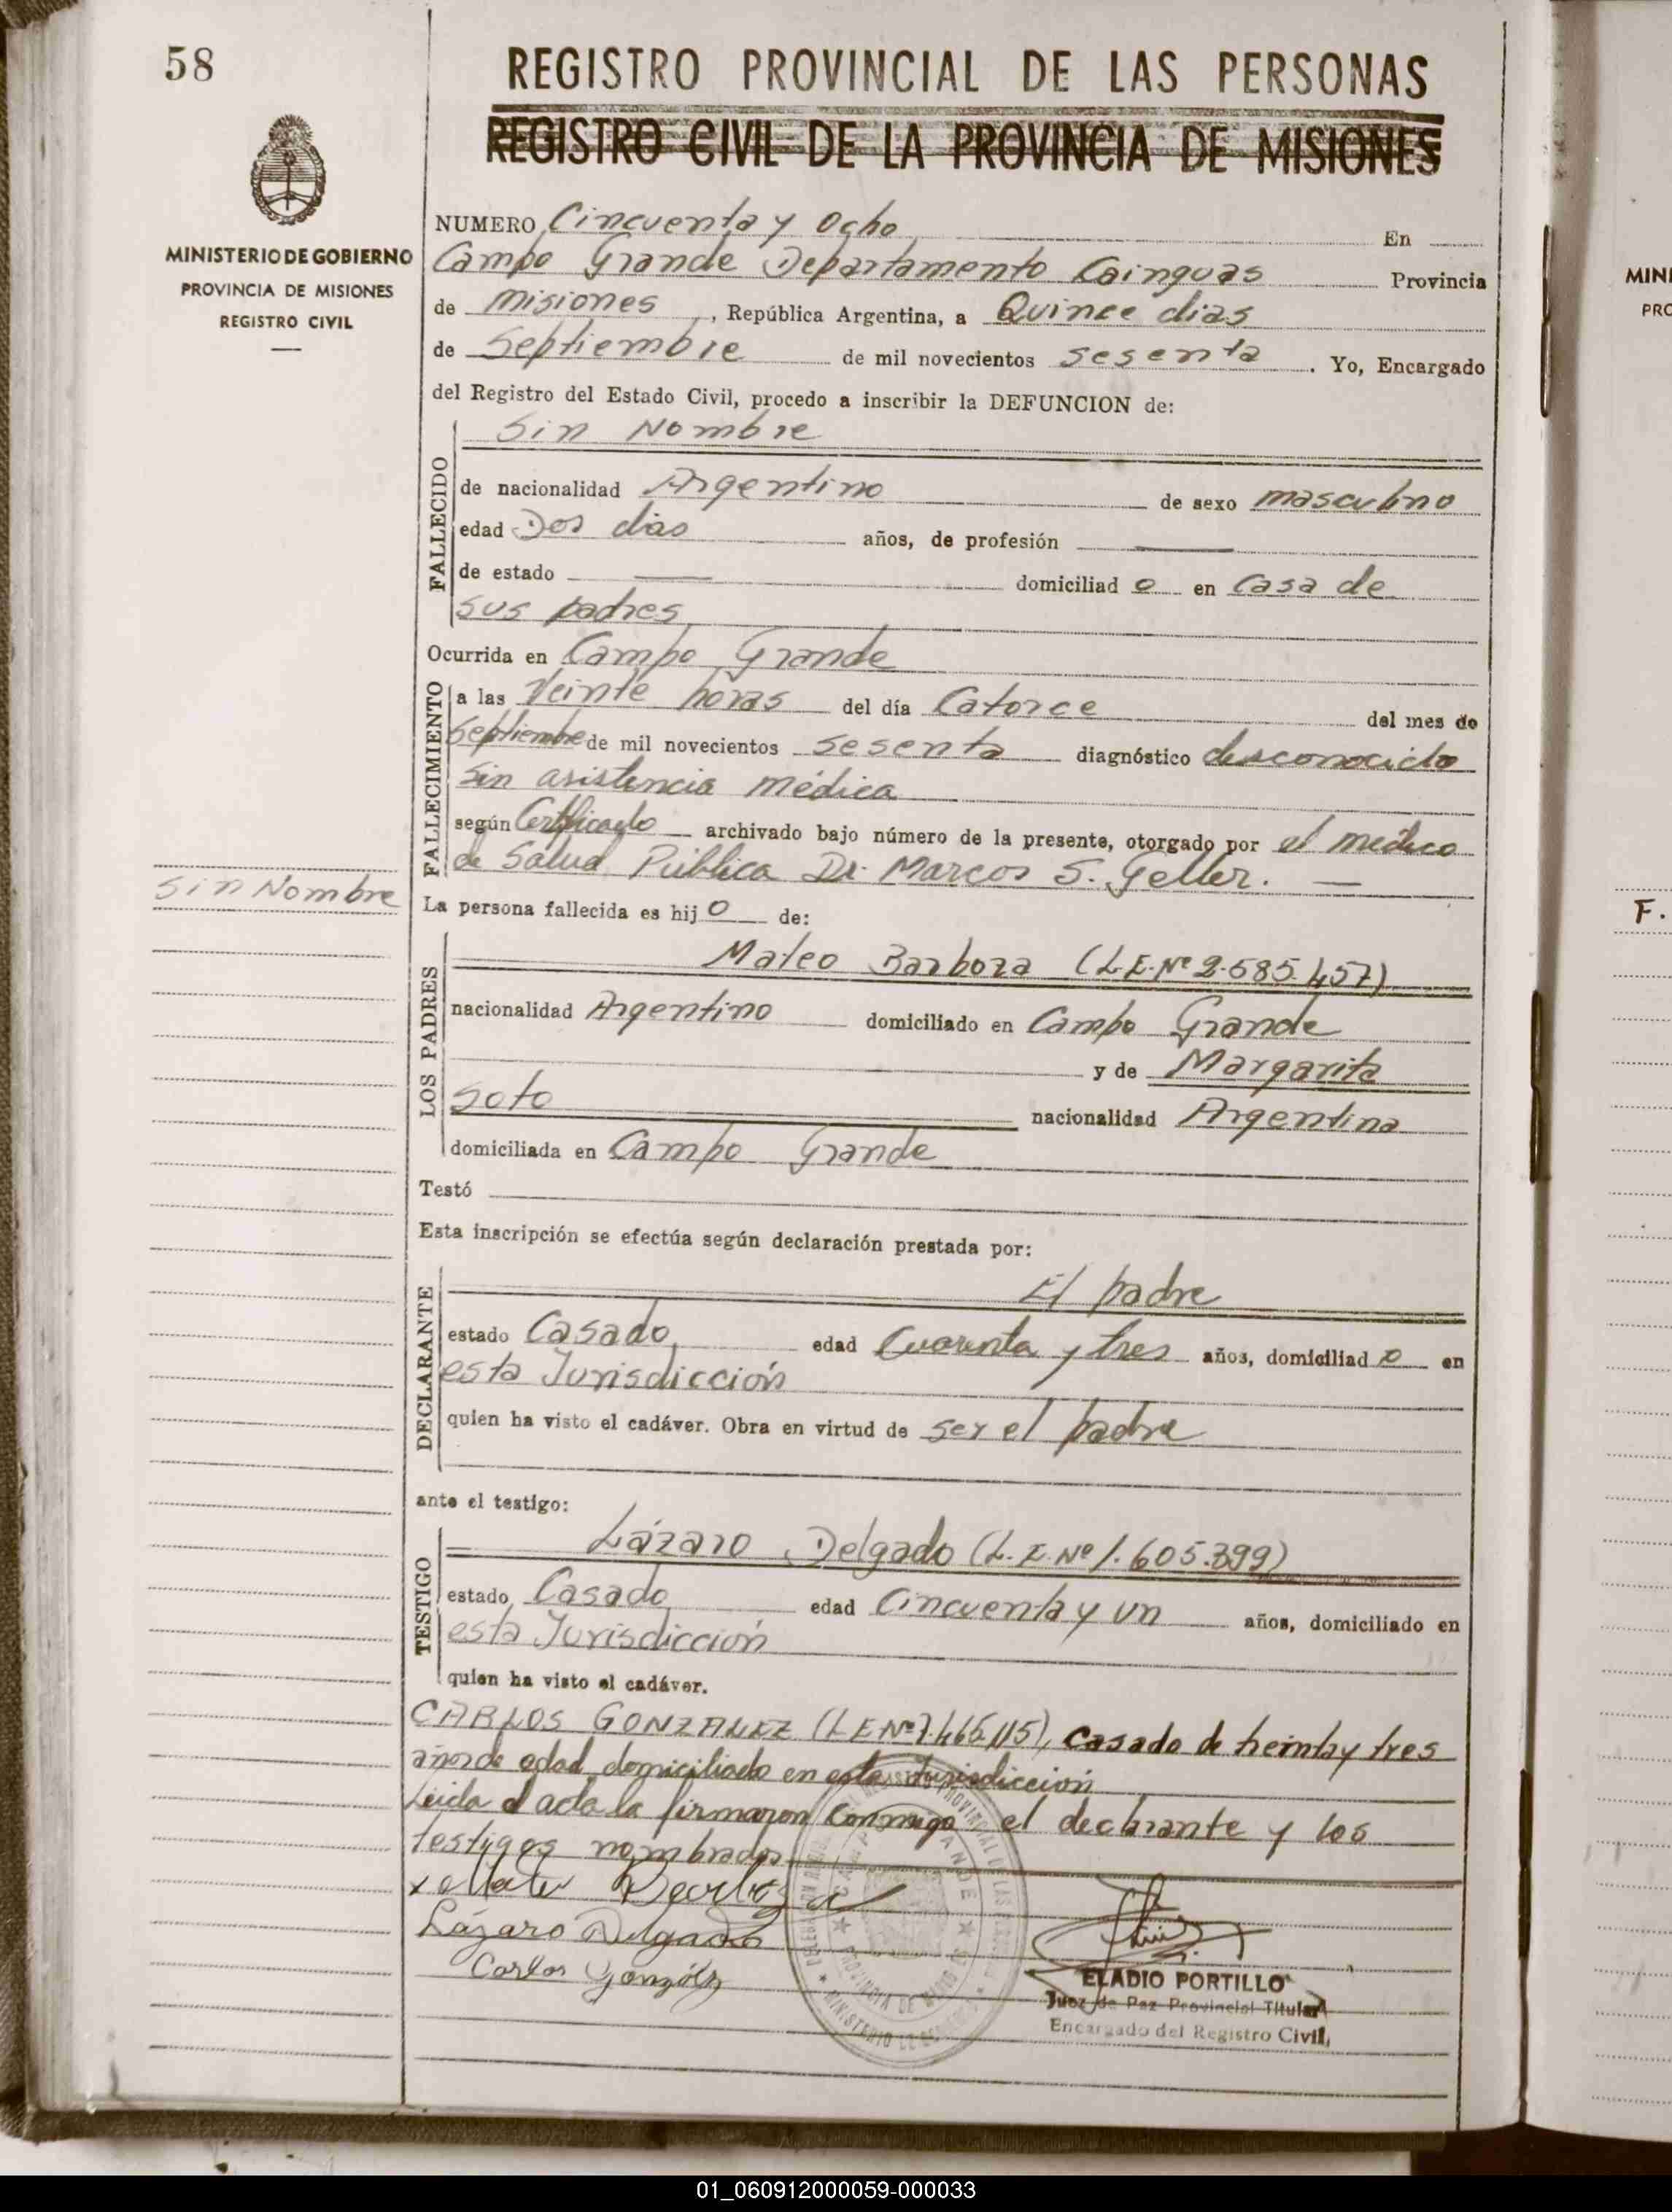 58
REGISTRO PROVINCIAL DE LAS PERSONAS
REGISTRO CIVIL DE LA PROVINCIA DE MISIONES
MINISTERIO DE GOBIERNO
PROVINCIA DE MISIONES
REGISTRO CIVIL
NUMERO Cincuenta y Ocho En
Campo Grande Departamento Cainguas Provincia
de Misiones, República Argentina, a Quince dias
de Septiembre de mil novecientos sesenta. Yo, Encargado
del Registro del Estado Civil, procedo a inscribir la DEFUNCION de:
FALLECIDO
Sin Nombre
de nacionalidad Argentino de sexo masculino
edad Dos dias años, de profesión —
de estado — domiciliad o en Casa de
sus padres
Ocurrida en Campo Grande
FALLECIMIENTO
a las Veinte horas del día Catorce del mes de
Septiembre de mil novecientos sesenta diagnóstico desconocido
sin asistencia médica
según Certificado archivado bajo número de la presente, otorgado por el médico
de Salud Pública Dr. Marcos S. Geller. —
Sin Nombre
La persona fallecida es hij o de:
LOS PADRES
Mateo Barboza (L.E.Nº 2.585.457)
nacionalidad Argentino domiciliado en Campo Grande
y de Margarita
Soto nacionalidad Argentina
domiciliada en Campo Grande
Testó
Esta inscripción se efectúa según declaración prestada por:
DECLARANTE
El padre
estado Casado edad Cuarenta y tres años, domiciliad o en
esta Jurisdicción
quien ha visto el cadáver. Obra en virtud de ser el padre
ante el testigo:
TESTIGO
Lázaro Delgado (L.E. Nº 1.605.399)
estado Casado edad Cincuenta y un años, domiciliado en
esta Jurisdicción
quien ha visto el cadáver.
CARLOS GONZALEZ (LE Nº 7.465.115), casado de treinta y tres
años de edad domiciliado en esta Jurisdiccion
Leida el acta la firmaron conmigo el declarante y los
testigos nombrados
Lázaro Delgado
Carlos González
ELADIO PORTILLO
Juez de Paz Provincial Titular
Encargado del Registro Civil
MINI
PRO
F.
01_060912000059-000033